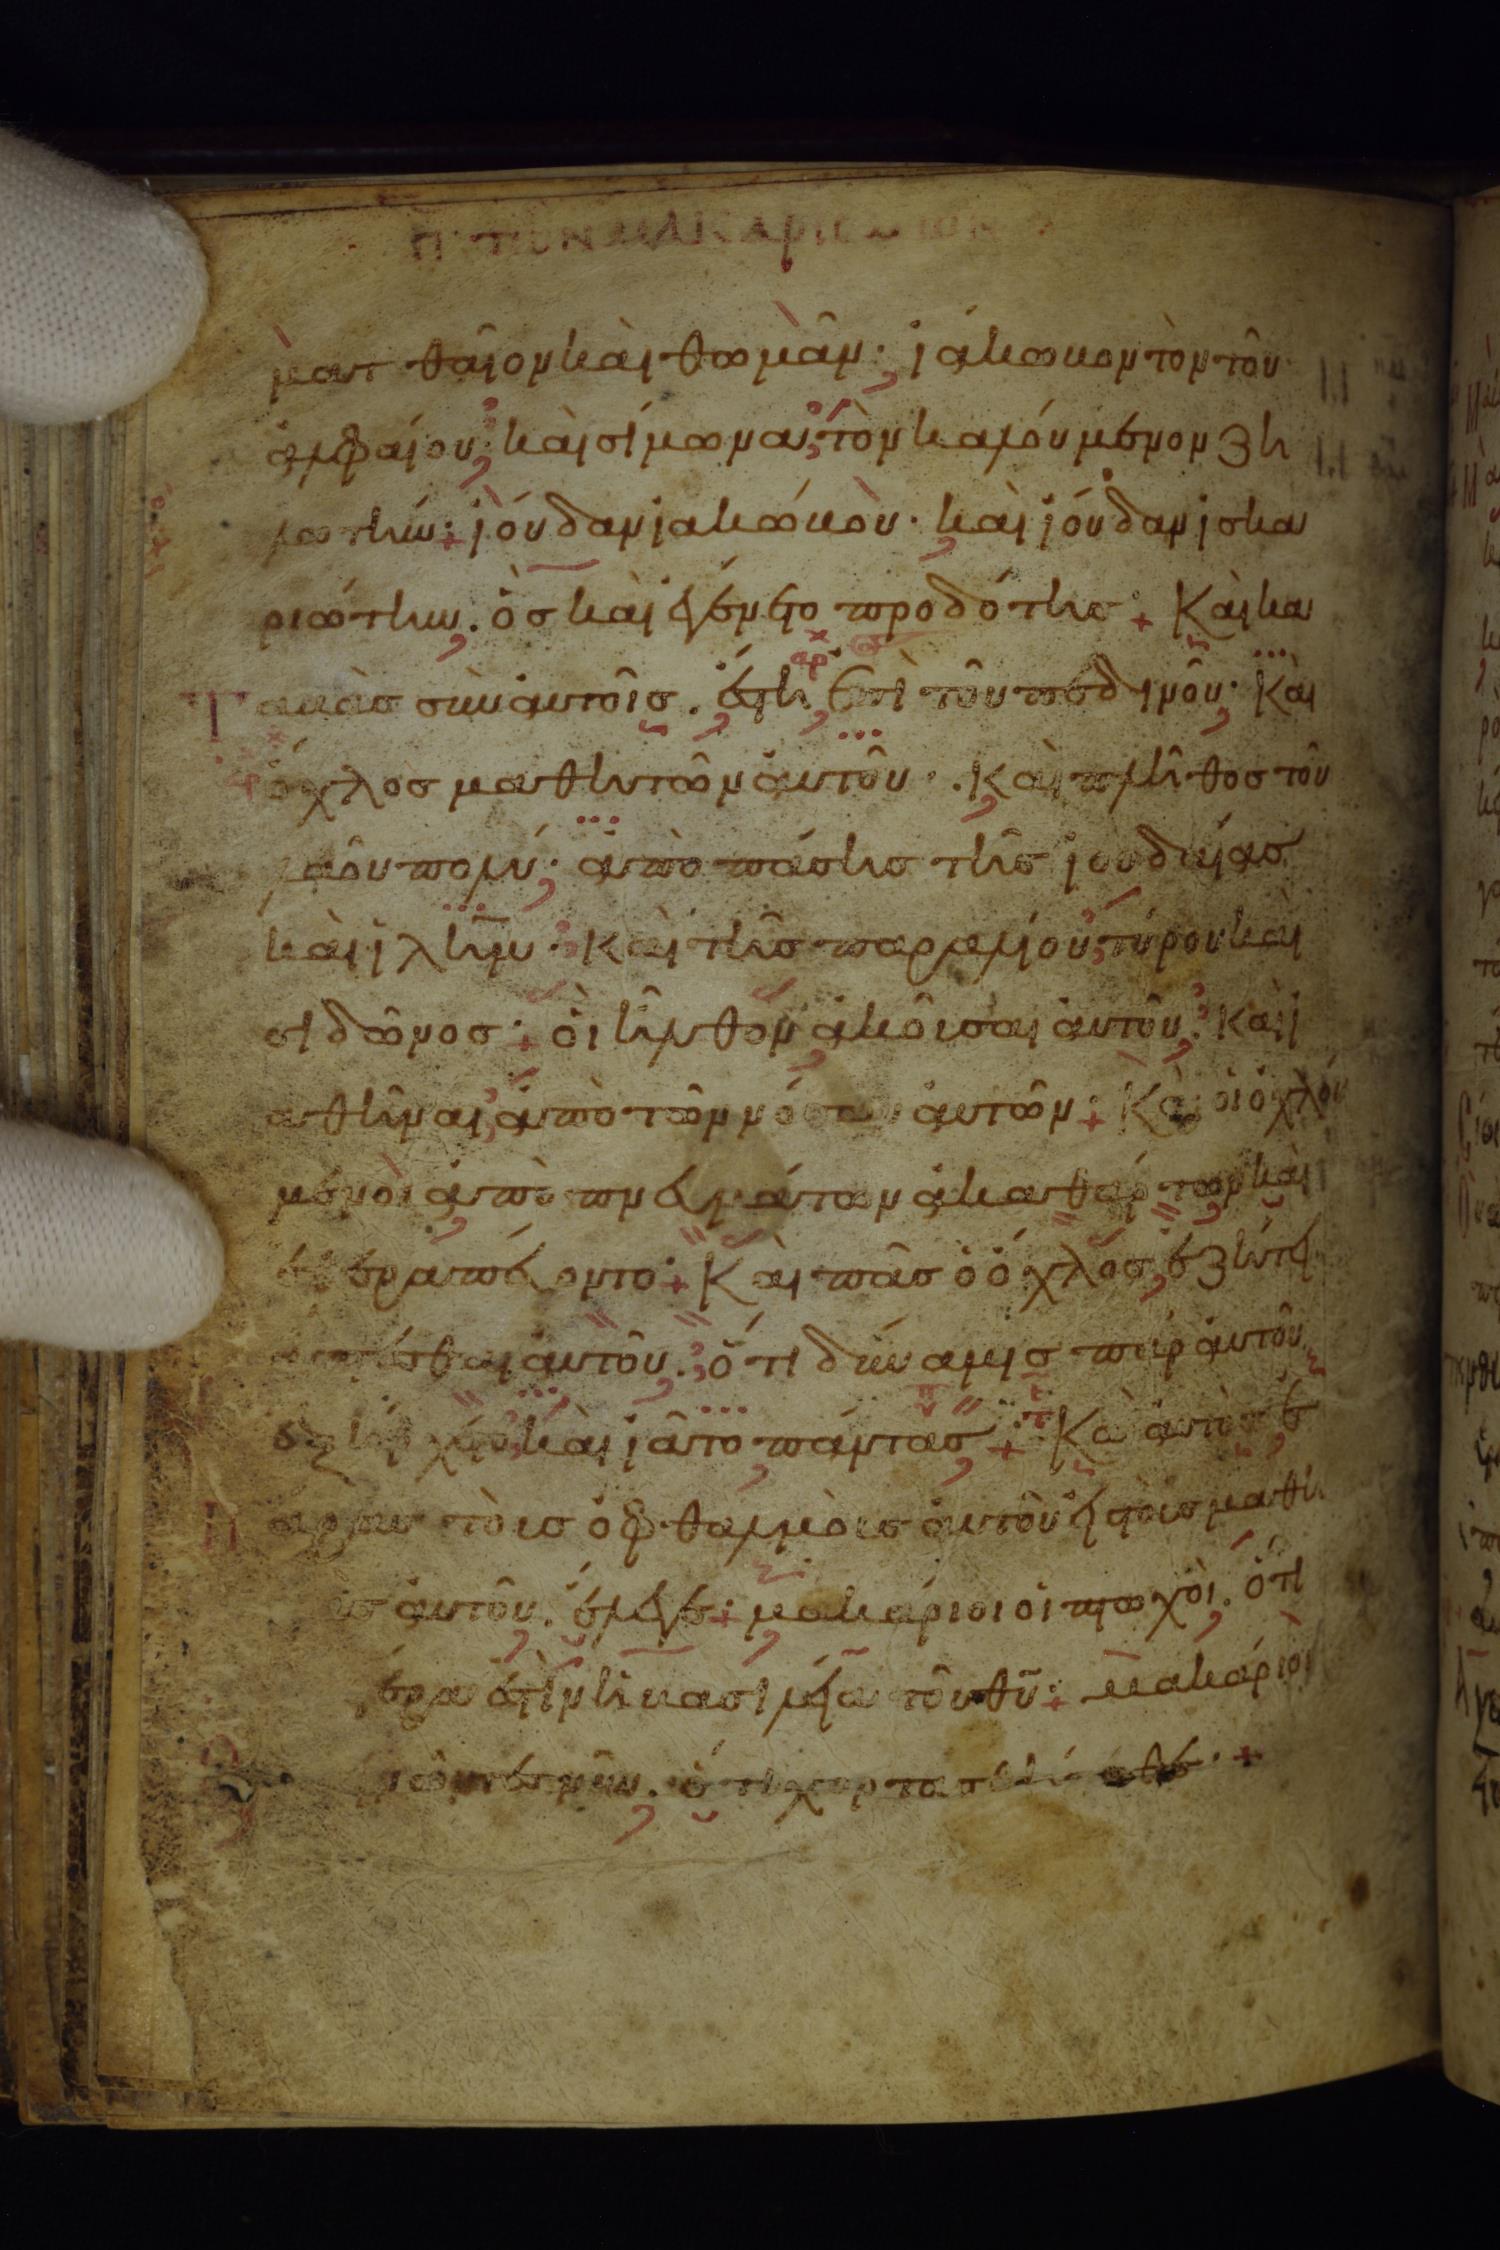 π τῶν μακαρισμῶν
ματθαῖον καὶ θωμᾶν· ἰάκωβον τὸν τοῦ
ἀλφαίου· καὶ σίμωνα τὸν καλούμενον ζη
λωτήν· ἰούδαν ἰακώβου· καὶ ἰούδαν ἰσκα
ριώτην. ὃς καὶ ἐγένετο προδότης· Καὶ κα
ταβὰς σὺν αὐτοῖς. ἔστη ἐπὶ τόπου πεδινοῦ· Καὶ
ὄχλος μαθητῶν αὐτοῦ· Καὶ πλῆθος τοῦ
λαοῦ πολύ· ἀπὸ πάσης τῆς ἰουδαίας
καὶ ἰλῆμ· Καὶ τῆς παραλίου τύρου καὶ
σιδῶνος· οἳ ἦλθον ἀκοῦσαι αὐτοῦ· Καὶ ἰ
αθῆναι ἀπὸ τῶν νόσων αὐτῶν· Καὶ οἱ ὀχλού
μενοι ἀπὸ πνευμάτων ἀκαθάρτων καὶ
ἐθεραπεύοντο· Καὶ πᾶς ὁ ὄχλος ἐζήτει
ἅπτεσθαι αὐτοῦ. ὅτι δύναμις παρ αὐτοῦ
ἐξήρχετο καὶ ἰᾶτο πάντας· Καὶ αὐτὸς ἐ
πάρας τοὺς ὀφθαλμοὺς αὐτοῦ εἰς τοὺς μαθη
τὰς αὐτοῦ. ἔλεγε· μακάριοι οἱ πτωχοὶ. ὅτι
ὑμετέρα ἐστὶν ἡ βασιλεία τοῦ θῦ· μακάριοι
οἱ πεινῶντες νῦν. ὅτι χορτασθήσεσθε·